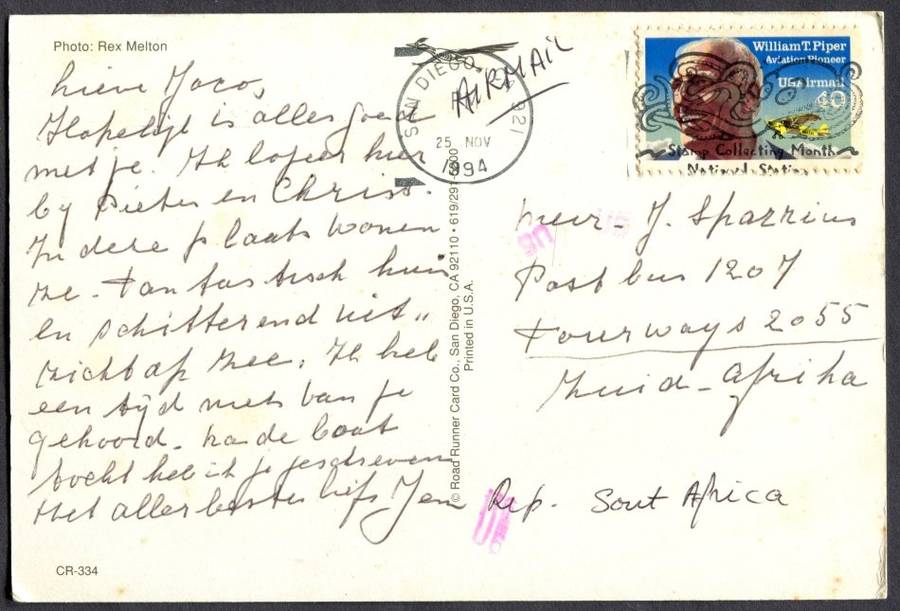 Photo: Rex Melton
Lieve Jaco,
Hopelijk is alles goed
met je. Ik logeer hier
by Pieter en Chriss.
In deze plaats wonen
ze. Fantastisch huis
en schitterend uit-
zicht op zee. Ik heb
een tijd niets van je
gehoord. Na de boot
tocht heb ik je geschreven
Het allerbeste liefs Jen
CR-334
© Road Runner Card Co., San Diego, CA 92110 • 619/291
Printed in U.S.A.
SAN DIEGO 921
25 NOV
1994
AIRMAIL
William T. Piper
Aviation Pioneer
USAirmail
40
Stamp Collecting Month
National Station
Meer. J. Sparrius
Postbus 1207
Fourways 2055
Zuid-Afrika
Rep. Sout Africa